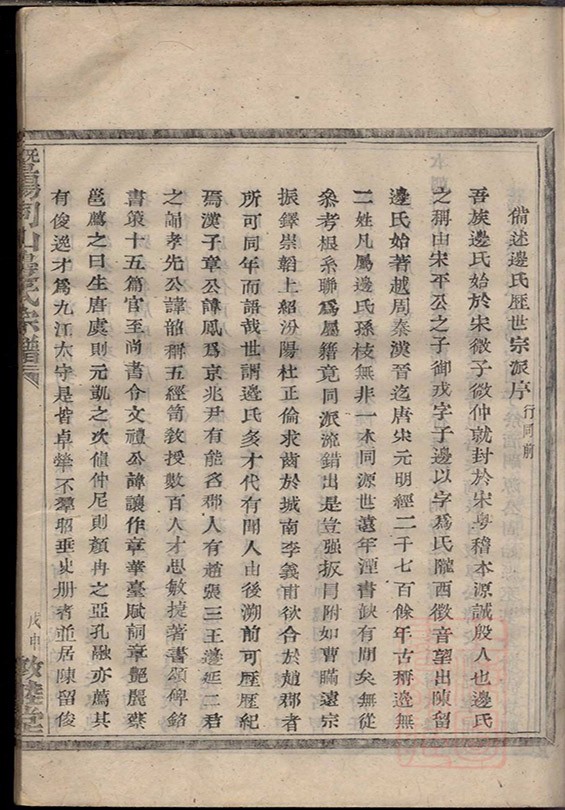 備述邊氏歷世宗派序 行同前
吾族邊氏始於宋微子微仲就封於宋粤稽本源誠殷人也邊氏
之稱由宋平公之子御戎字子邊以字為氏隴西徵音望出陳留
邊氏始著越周秦漢晉迄唐宋元明經二千七百餘年古稱邊無
二姓凡屬邊氏孫枝無非一本同源世遠年湮書缺有間矣無從
參考根系聯為屬籍竟同派流錯出是豈强扳冐附如曹瞞遠宗
振鐸崇韜上紹汾陽杜正倫求齒於城南李義甫欲合於趙郡者
所可同年而語哉世謂邊氏多才代有聞人由後溯前可歷歷紀
焉漢子章公諱鳳為京兆尹有能名郡人有趙張三王邊延二君
之誦孝先公諱韶稱五經笥教授數百人才思敏捷著書頌碑銘
書策十五篇官至尚書令文禮公諱讓作章華臺賦詞章艷麗蔡
邕薦之曰生唐虞則元凱之次値仲尼則顏冉之亞孔融亦薦其
有俊逸才為九江太守是皆卓犖不羣照垂史册者並居陳留俊
暨陽同山邊氏宗譜
戊申
敦睦堂